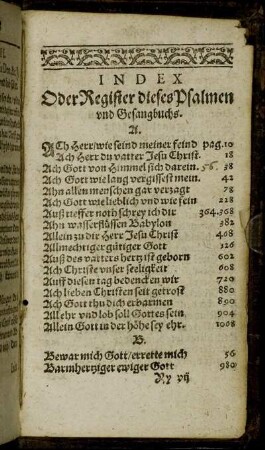 INDEX
Oder Register dieses Psalmen
vnd Gesangbuchs.
A.
Ach Herr/wie seind meiner feind pag. 10
Ach Herr du vatter Jesu Christ. 18
Ach Gott von Himmel sich darein. 56. 38
Ach Gott wie lang vergissest mein. 42
An allen menschen gar verzagt 78
Ach Gott wie lieblich vnd wie fein 228
Auß tieffer noth schrey ich dir 364.368
An wasserflüssen Babylon 382
Allein zu dir Herr Jesu Christ 468
Allmechtiger gütiger Gott 126
Auß des vatters hertz ist geborn 602
Ach Christe vnser seeligkeit 608
Auff diesen tag bedencken wir 720
Ach lieben Christen seit getrost 880
Ach Gott thu dich erbarmen 890
All ehr vnd lob soll Gottes sein 904
Allein Gott in der höhe sey ehr. 1008
B.
Bewar mich Gott/errette mich 56
Barmhertziger ewiger Gott 980
yij